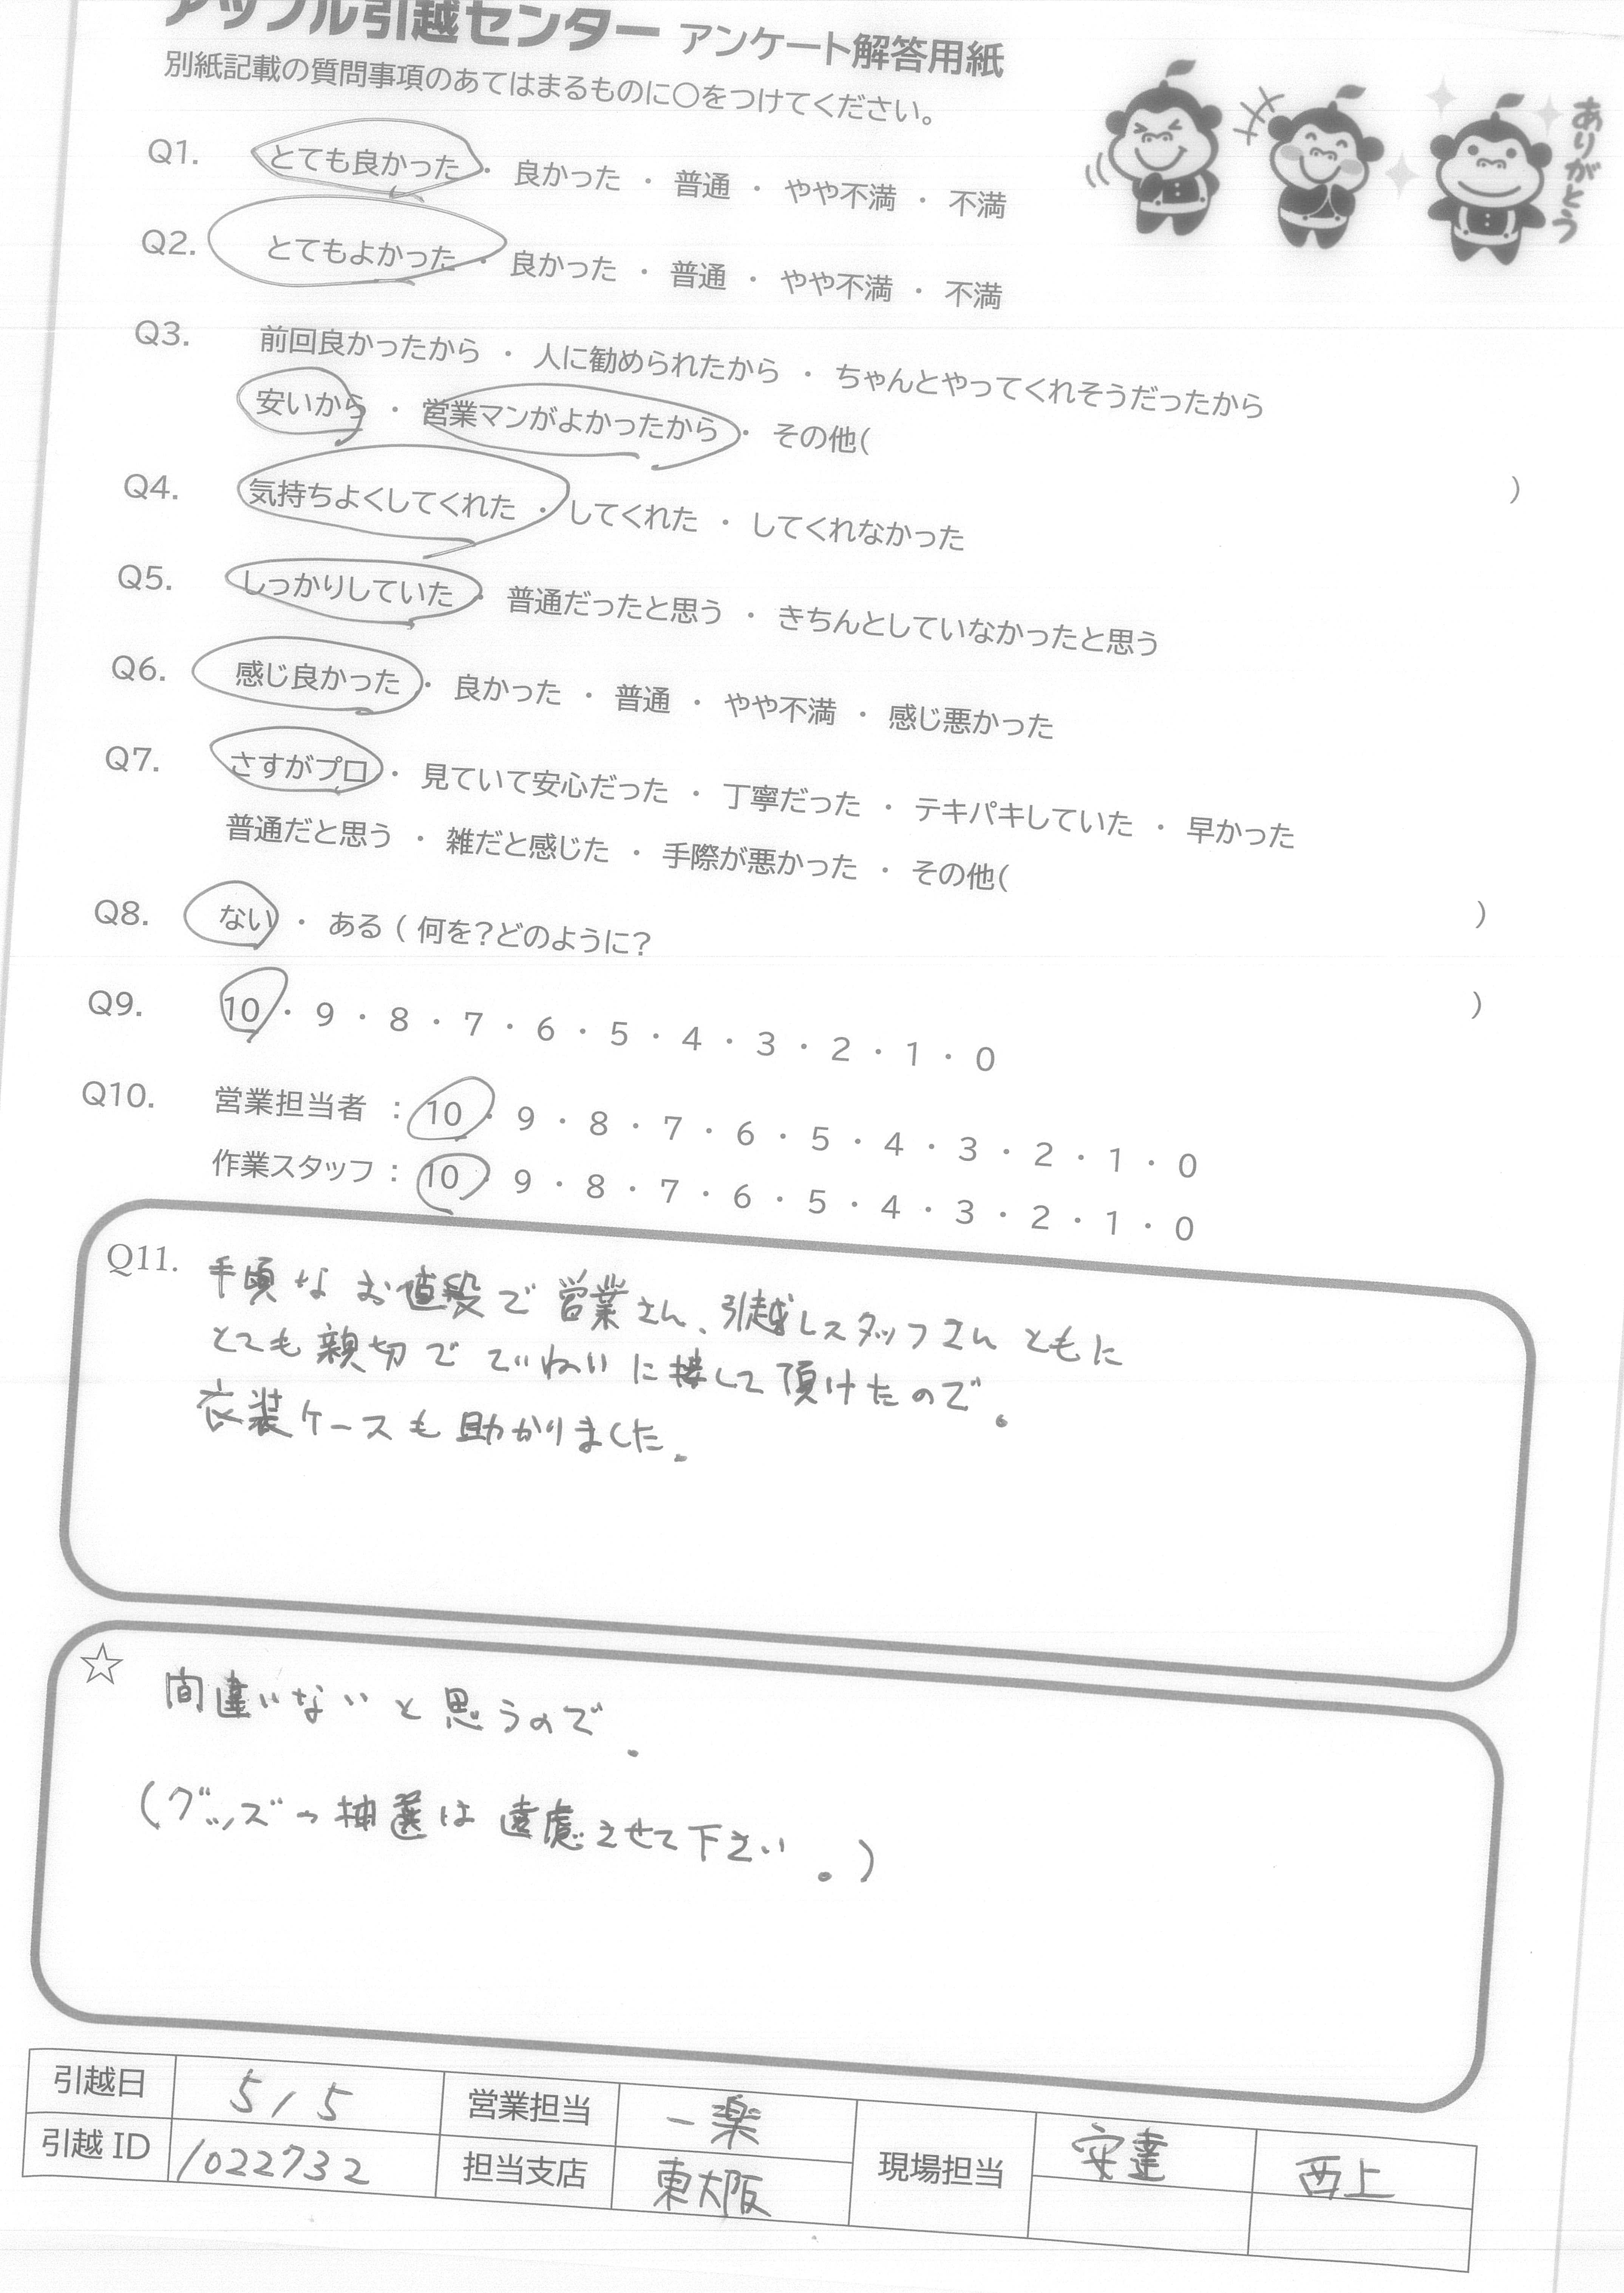 アップル引越センター アンケート解答用紙
別紙記載の質問事項のあてはまるものに〇をつけてください。
ありがとう
Q1. とても良かった ・ 良かった ・ 普通 ・ やや不満 ・ 不満
Q2. とてもよかった ・ 良かった ・ 普通 ・ やや不満 ・ 不満
Q3. 前回良かったから ・ 人に勧められたから ・ ちゃんとやってくれそうだったから
安いから ・ 営業マンがよかったから ・ その他( )
Q4. 気持ちよくしてくれた ・ してくれた ・ してくれなかった
Q5. しっかりしていた ・ 普通だったと思う ・ きちんとしていなかったと思う
Q6. 感じ良かった ・ 良かった ・ 普通 ・ やや不満 ・ 感じ悪かった
Q7. さすがプロ ・ 見ていて安心だった ・ 丁寧だった ・ テキパキしていた ・ 早かった
普通だと思う ・ 雑だと感じた ・ 手際が悪かった ・ その他( )
Q8. ない ・ ある ( 何を?どのように? )
Q9. 10 ・ 9 ・ 8 ・ 7 ・ 6 ・ 5 ・ 4 ・ 3 ・ 2 ・ 1 ・ 0
Q10. 営業担当者 : 10 ・ 9 ・ 8 ・ 7 ・ 6 ・ 5 ・ 4 ・ 3 ・ 2 ・ 1 ・ 0
作業スタッフ : 10 ・ 9 ・ 8 ・ 7 ・ 6 ・ 5 ・ 4 ・ 3 ・ 2 ・ 1 ・ 0
Q11. 手頃なお値段で営業さん、引越しスタッフさんともに
とても親切でていねいに接して頂けたので。
衣装ケースも助かりました。
☆ 間違いないと思うので。
(グッズの抽選は遠慮させて下さい。)
引越日 5/5 営業担当 一楽 現場担当 安達 西上
引越ID 1022732 担当支店 東大阪